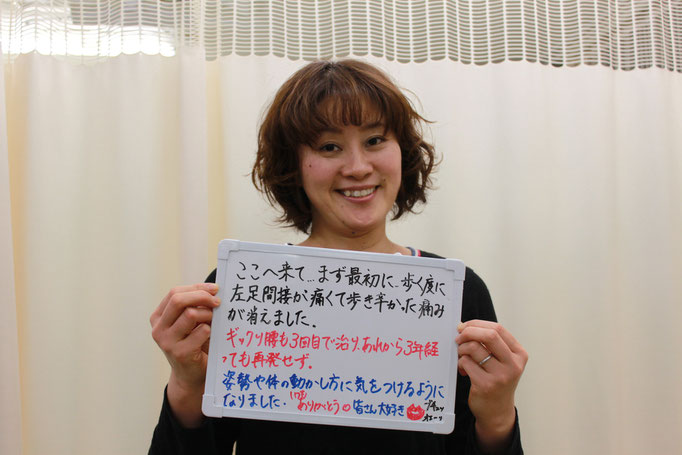 ここへ来て…まず最初に…歩く度に
左足間接が痛くて歩き辛かった痛み
が消えました。
ギックリ腰も3回目で治り、あれから3年経
っても再発せず。
姿勢や体の動かし方に気をつけるように
なりました。いつもありがとう♡皆さん大好き